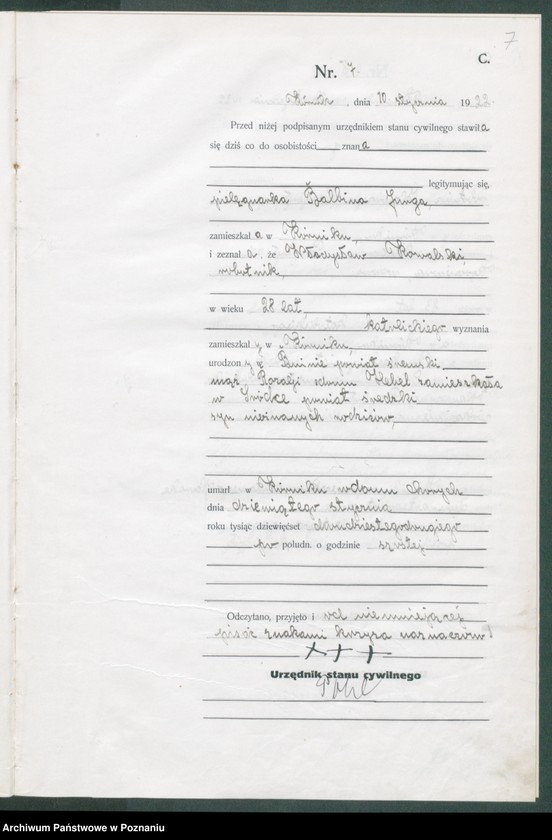 7
C.
Nr. 7.
Kórnik, dnia 10 stycznia 1922
Przed niżej podpisanym urzędnikiem stanu cywilnego stawiła
się dziś co do osobistości znana
legitymując się,
pielęgnarka Balbina Junga,
zamieszkała w Kórniku,
i zeznała, że Władysław Kowalski
robotnik,
w wieku 28 lat
katolickiego wyznania
zamieszkały w Kórniku,
urodzony w Bninie powiat śremski,
mąż Rozalji zdomu Hebel zamieszkała
w Środce powiat średzki
syn nieznanych rodziców,
umarł w Kórniku wdomu chorych
dnia dziewiątego stycznia
roku tysiąc dziewięćset dwudziestegodrugiego
po połudn. o godzinie szóstej
Odczytano, przyjęto i od nieumiejącej
pisać znakami krzyża naznaczono!
+++
Urzędnik stanu cywilnego
Archiwum Państwowe w Poznaniu